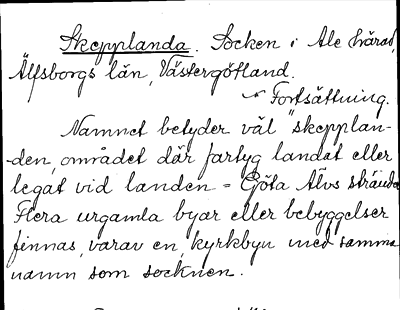 Skepplanda. Socken i Ale härad,
Älfsborgs län, Västergötland.
* Fortsättning.
Namnet betyder väl "skepplan-
-den, området där fartyg landat eller
legat vid landen = Göta Älvs stränder
Flera urgamla byar eller bebyggelser
finnas, varav en, kyrkbyn med samma
namn som socknen.